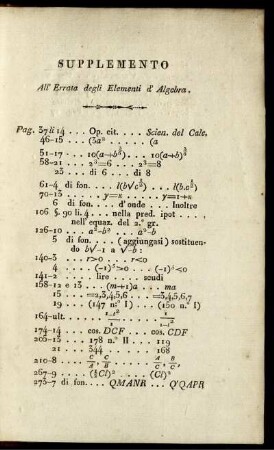 SUPPLEMENTO
All' Errata degli Elementi d' Algebra.
Pag. 37 li 14 . . . Op. cit. . . . Scien. del Calc.
46-15 . . . (3a² . . . . . (a
51-17 . . . 10(a+b^{3/2}) . . . 10(a+b)^{3/2}
58-21 . . . . 2³=6 . . . 2³=8
25 . . . . di 6 . . . di 8
61-4 di fon. . . . l(b√c^{3/2}) . . . l(b.c^{3/2})
70-15 . . . . . y=x . . . . . y=1+x
6 di fon. . . . . d'onde . . . Inoltre
106 §. 90 li. 4 . . . nella pred. ipot . . . .
nell'equaz. del 2.° gr.
126-10 . . . a²-b² . . . a³-b
5 di fon. . . . (aggiungasi) sostituen-
do b√-1 a √-b:
140-3 . . . . r>0 . . . r<0
4 . . . . >0 . . . . <0
141-2 . . . . . lire . . . . scudi
158-12 e 13 . . . (m+1)a . . . ma
15 . . =2,3,4,5,6 . . . =3,4,5,6,7
19 . . . (147 n.° I) . . . (150 n.° I)
164-ult. . . . . . . . .
174-14 . . . . . cos. DCF . . . cos. CDF
206-15 . . . . 178 n.° II . . . 119
21 . . . . 344 . . . . . 168
210-8 . . . . C/A, C/B . . . . A/C, B/C,
267-9 . . . . (½Cl)² . . . . . (Cl)²
275-7 di fon. . . . QMANR . . . Q'QAPR